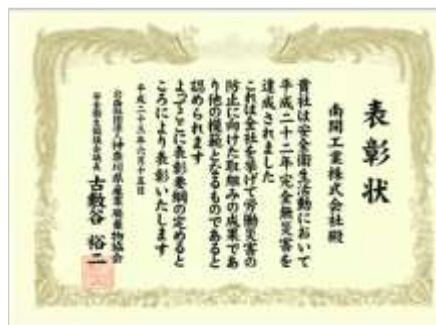 表彰状
南開工業株式会社殿
貴社は安全衛生活動において
平成二十二年完全無災害を
達成されました
これは全社を挙げて労働災害の
防止に向けた取組みの成果であ
り他の模範となるものであると
認められます
よってここに表彰要綱の定めると
ころにより表彰いたします
平成二十三年六月十五日
公益社団法人神奈川県産業廃棄物協会
安全衛生協議会議長 古敷谷 裕二